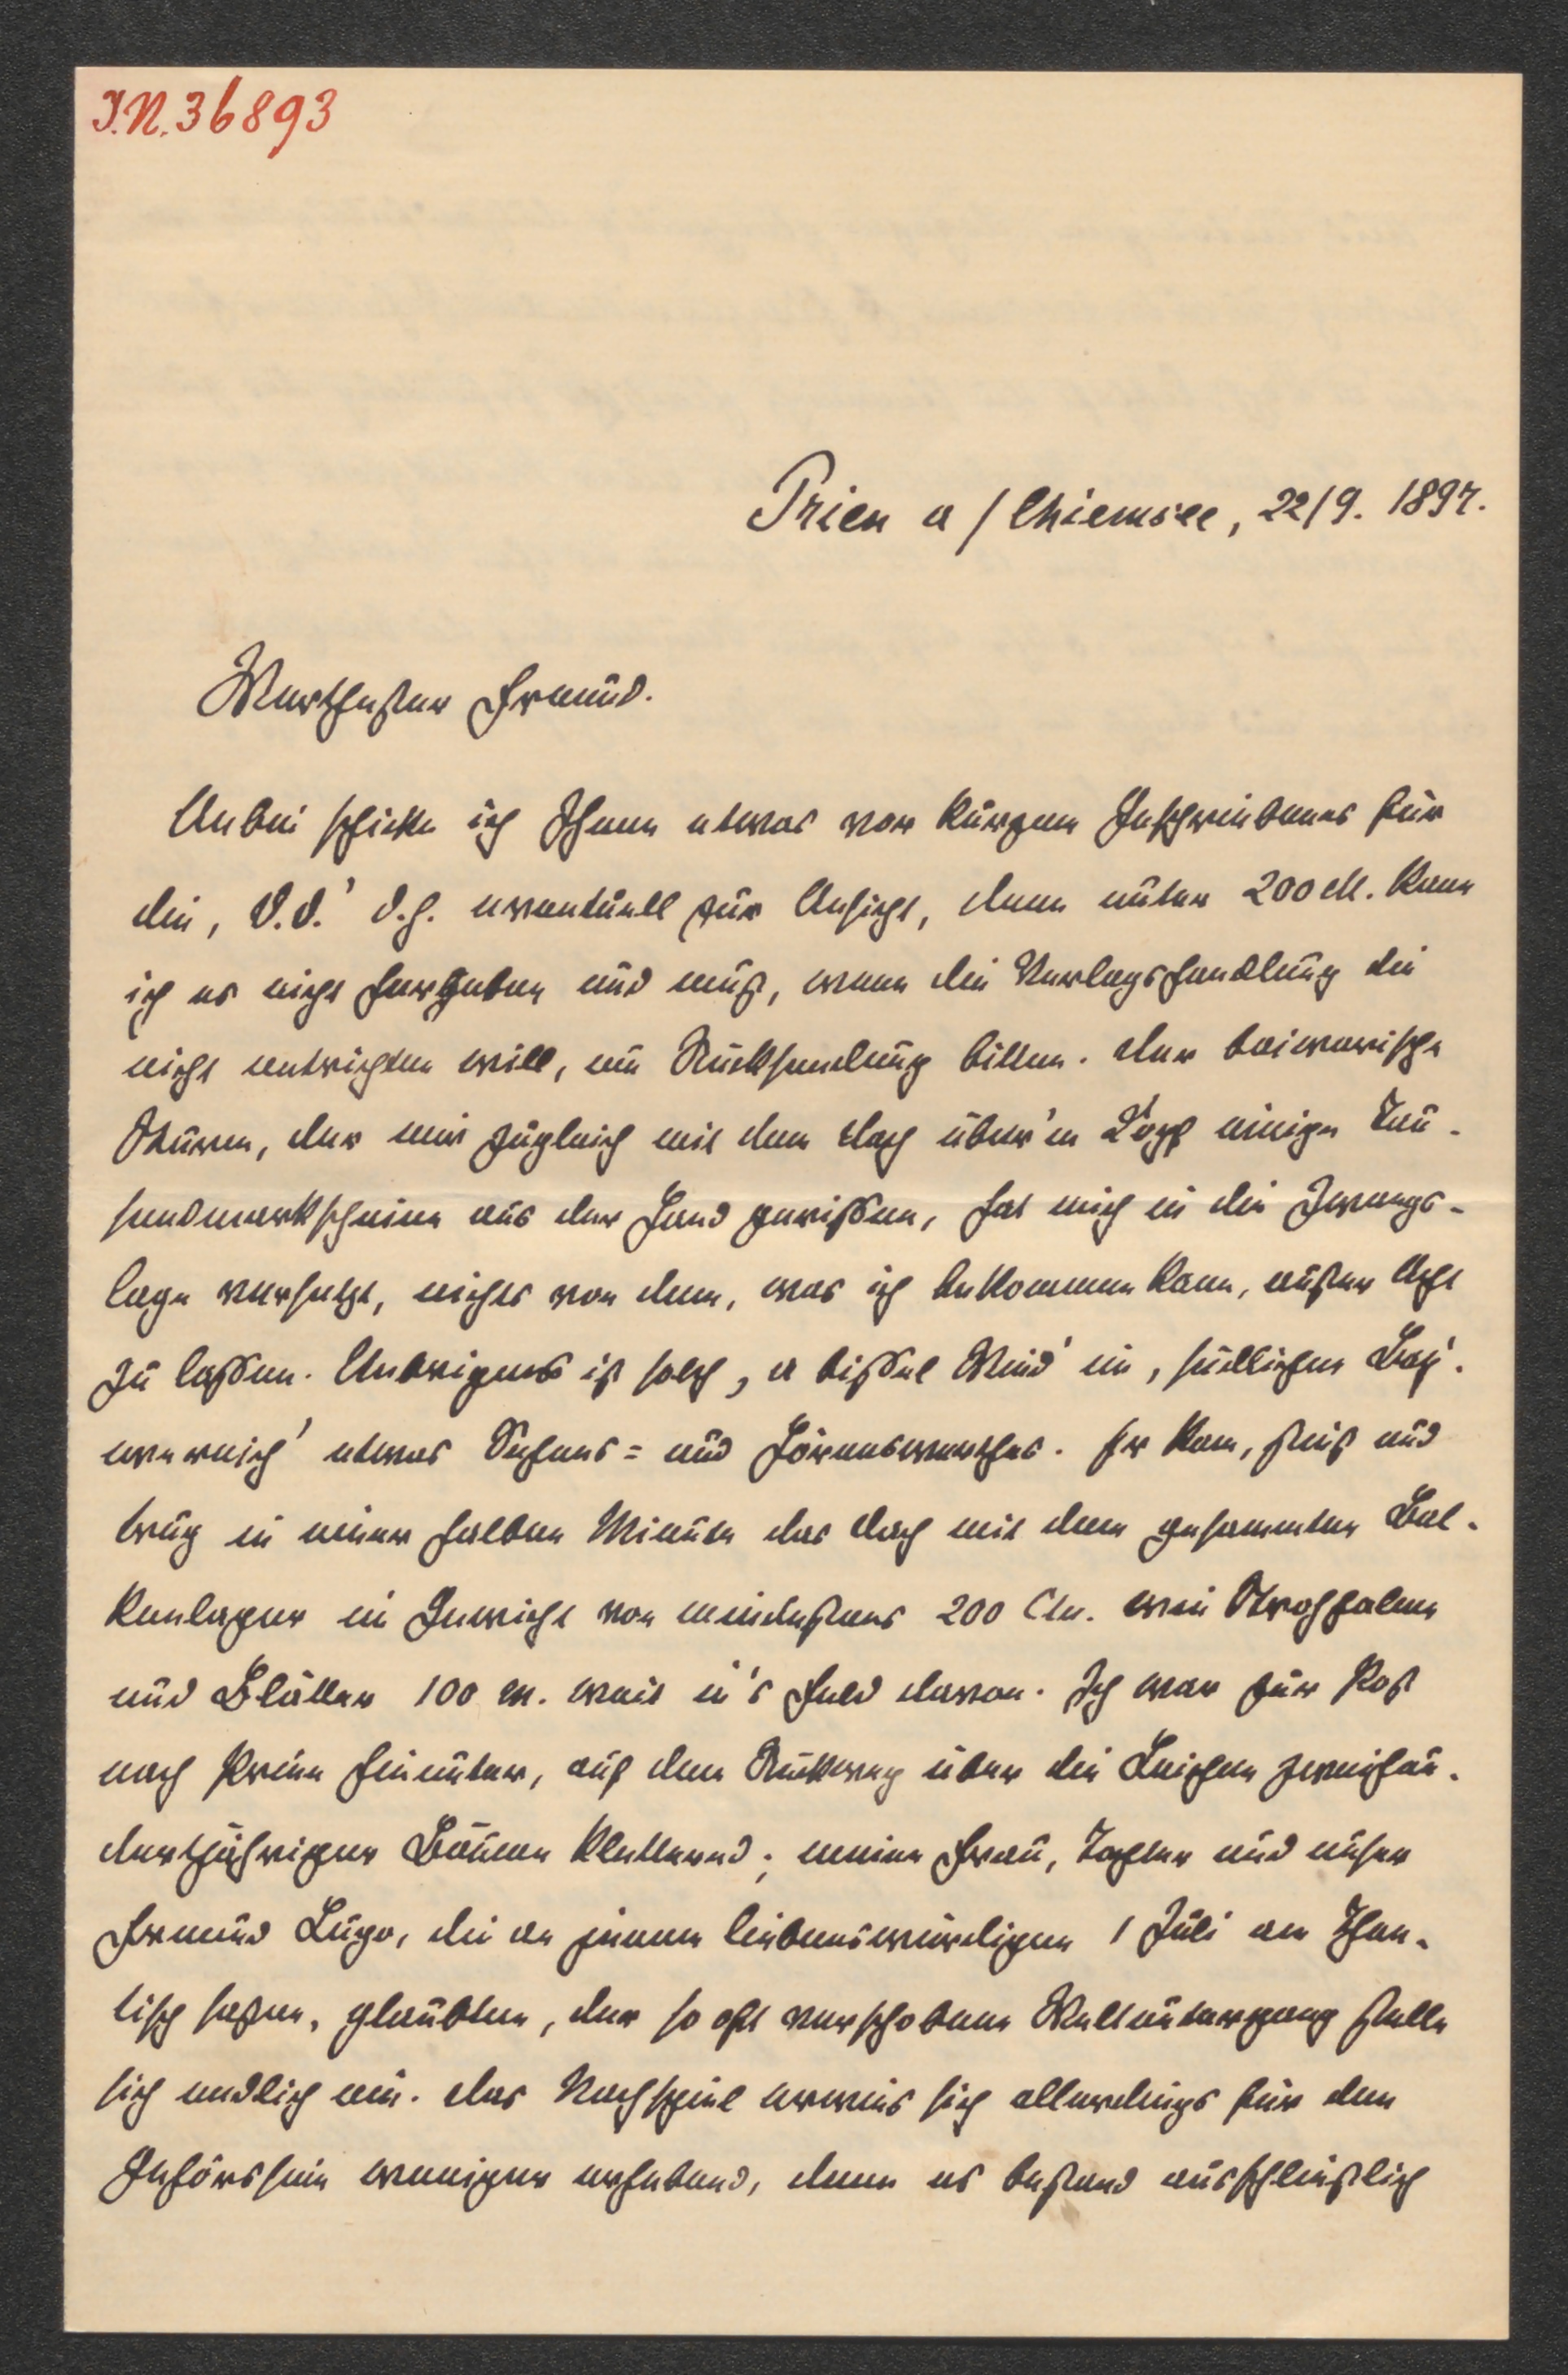 I.N. 36893
Prien a/Chiemsee, 22/9. 1897.
Werthester Freund.
Anbei schicke ich Ihnen etwas vor Kurzem Geschriebenes für
die, D.D.' d.h. eventuell zur Ansicht, denn unter 200 M. kann
ich es nicht hergeben und muß, wenn die Verlagshandlung die
nicht entrichten will, um Rücksendung bitten. Der baiwarische
Sturm, der mir zugleich mit dem Dach über'm Kopf einige Tau-
sendmarkscheine aus der Hand gerissen, hat mich in die Zwangs-
lage versetzt, nichts von dem, was ich bekommen kann, außer Acht
zu lassen. Uebrigens ist solch, a bissel Wind' im, südlichen Bay-
erreich' etwas Sehens= und Hörenswerthes. Er kam, stieß und
trug in einer halben Minute das Dach mit dem gesammten Bal-
kenlager im Gewicht von mindestens 200 Ctr. wie Strohhalme
und Blätter 100 m. weit in's Feld davon. Ich war zur Post
nach Prien hinunter, auf dem Rückweg über die Leichen zweihun-
dertjähriger Bäume kletternd; meine Frau, Tochter und unser
Freund Lugo, die an jenem liebenswürdigen 1 Juli am Thee-
tisch saßen, glaubten, der so oft verschobene Weltuntergang stelle
sich endlich ein. Das Nachspiel erwies sich allerdings für den
Gehörssinn weniger erhebend, denn es bestand ausschließlich